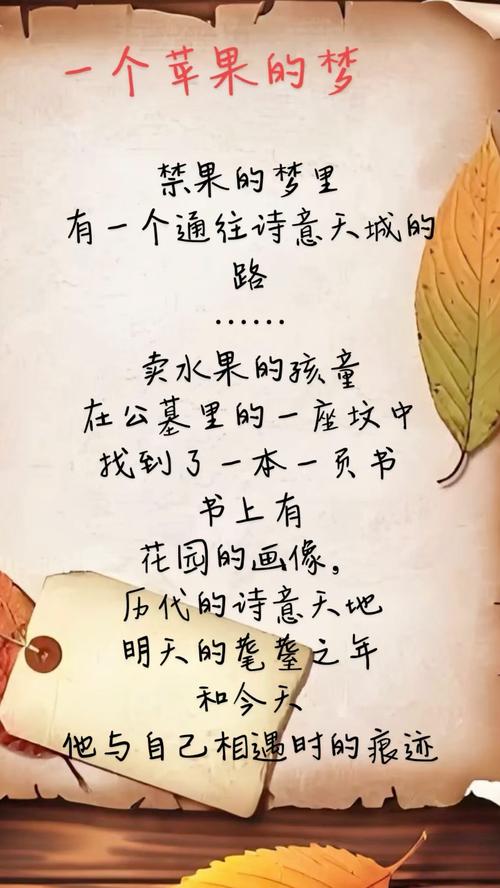 一个苹果的梦
禁果的梦里
有一个通往诗意天城的
路
......
卖水果的孩童
在公墓里的一座坟中
找到了一本一页书
书上有
花园的画像,
历代的诗意天地
明天的耄耋之年
和今天
他与自己相遇时的痕迹